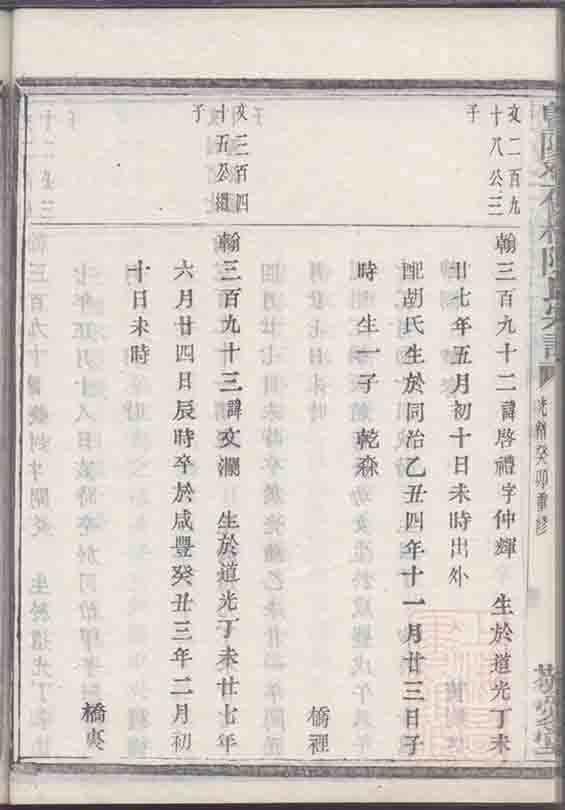 光緒癸卯重修
文二百九
十八公三
子
翰三百九十二諱啓禮字仲輝 生於道光丁未
廿七年五月初十日未時出外
配胡氏生於同治乙丑四年十一月廿三日子
時生一子 乾森
橋裡
文三百四
十五公繼
子
翰三百九十三諱文瀾 生於道光丁未廿七年
六月廿四日辰時卒於咸豐癸丑三年二月初
十日未時
橋裏